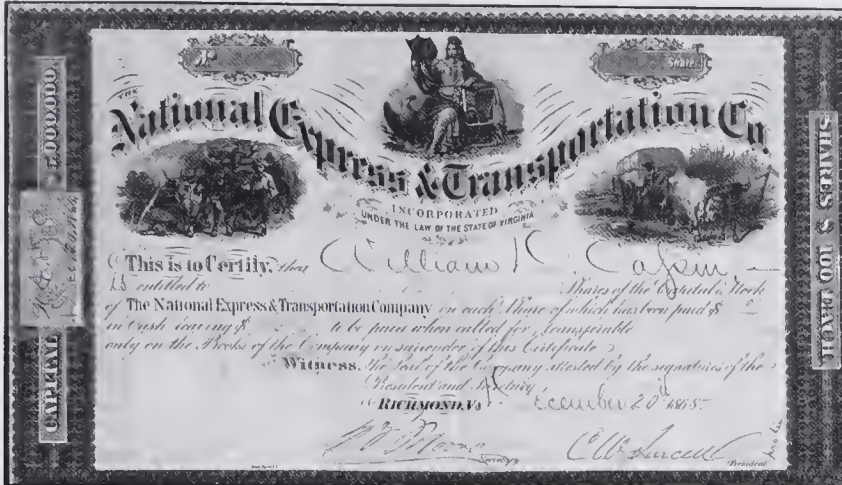 No
Shares
THE
National Express & Transportation Co.
INCORPORATED
UNDER THE LAW OF THE STATE OF VIRGINIA
CAPITAL $ 5,000,000
SHARES $ 100 EACH
This is to Certify, that William K.
is entitled to Shares of the Capital Stock
of The National Express & Transportation Company on each Share of which has been paid $
in Cash leaving $ to be paid when called for Transferable
only on the Books of the Company on surrender of this Certificate
Witness, the Seal of the Company attested by the signatures of the
President and Secretary
RICHMOND, Va December 20th 1865
Secretary
President